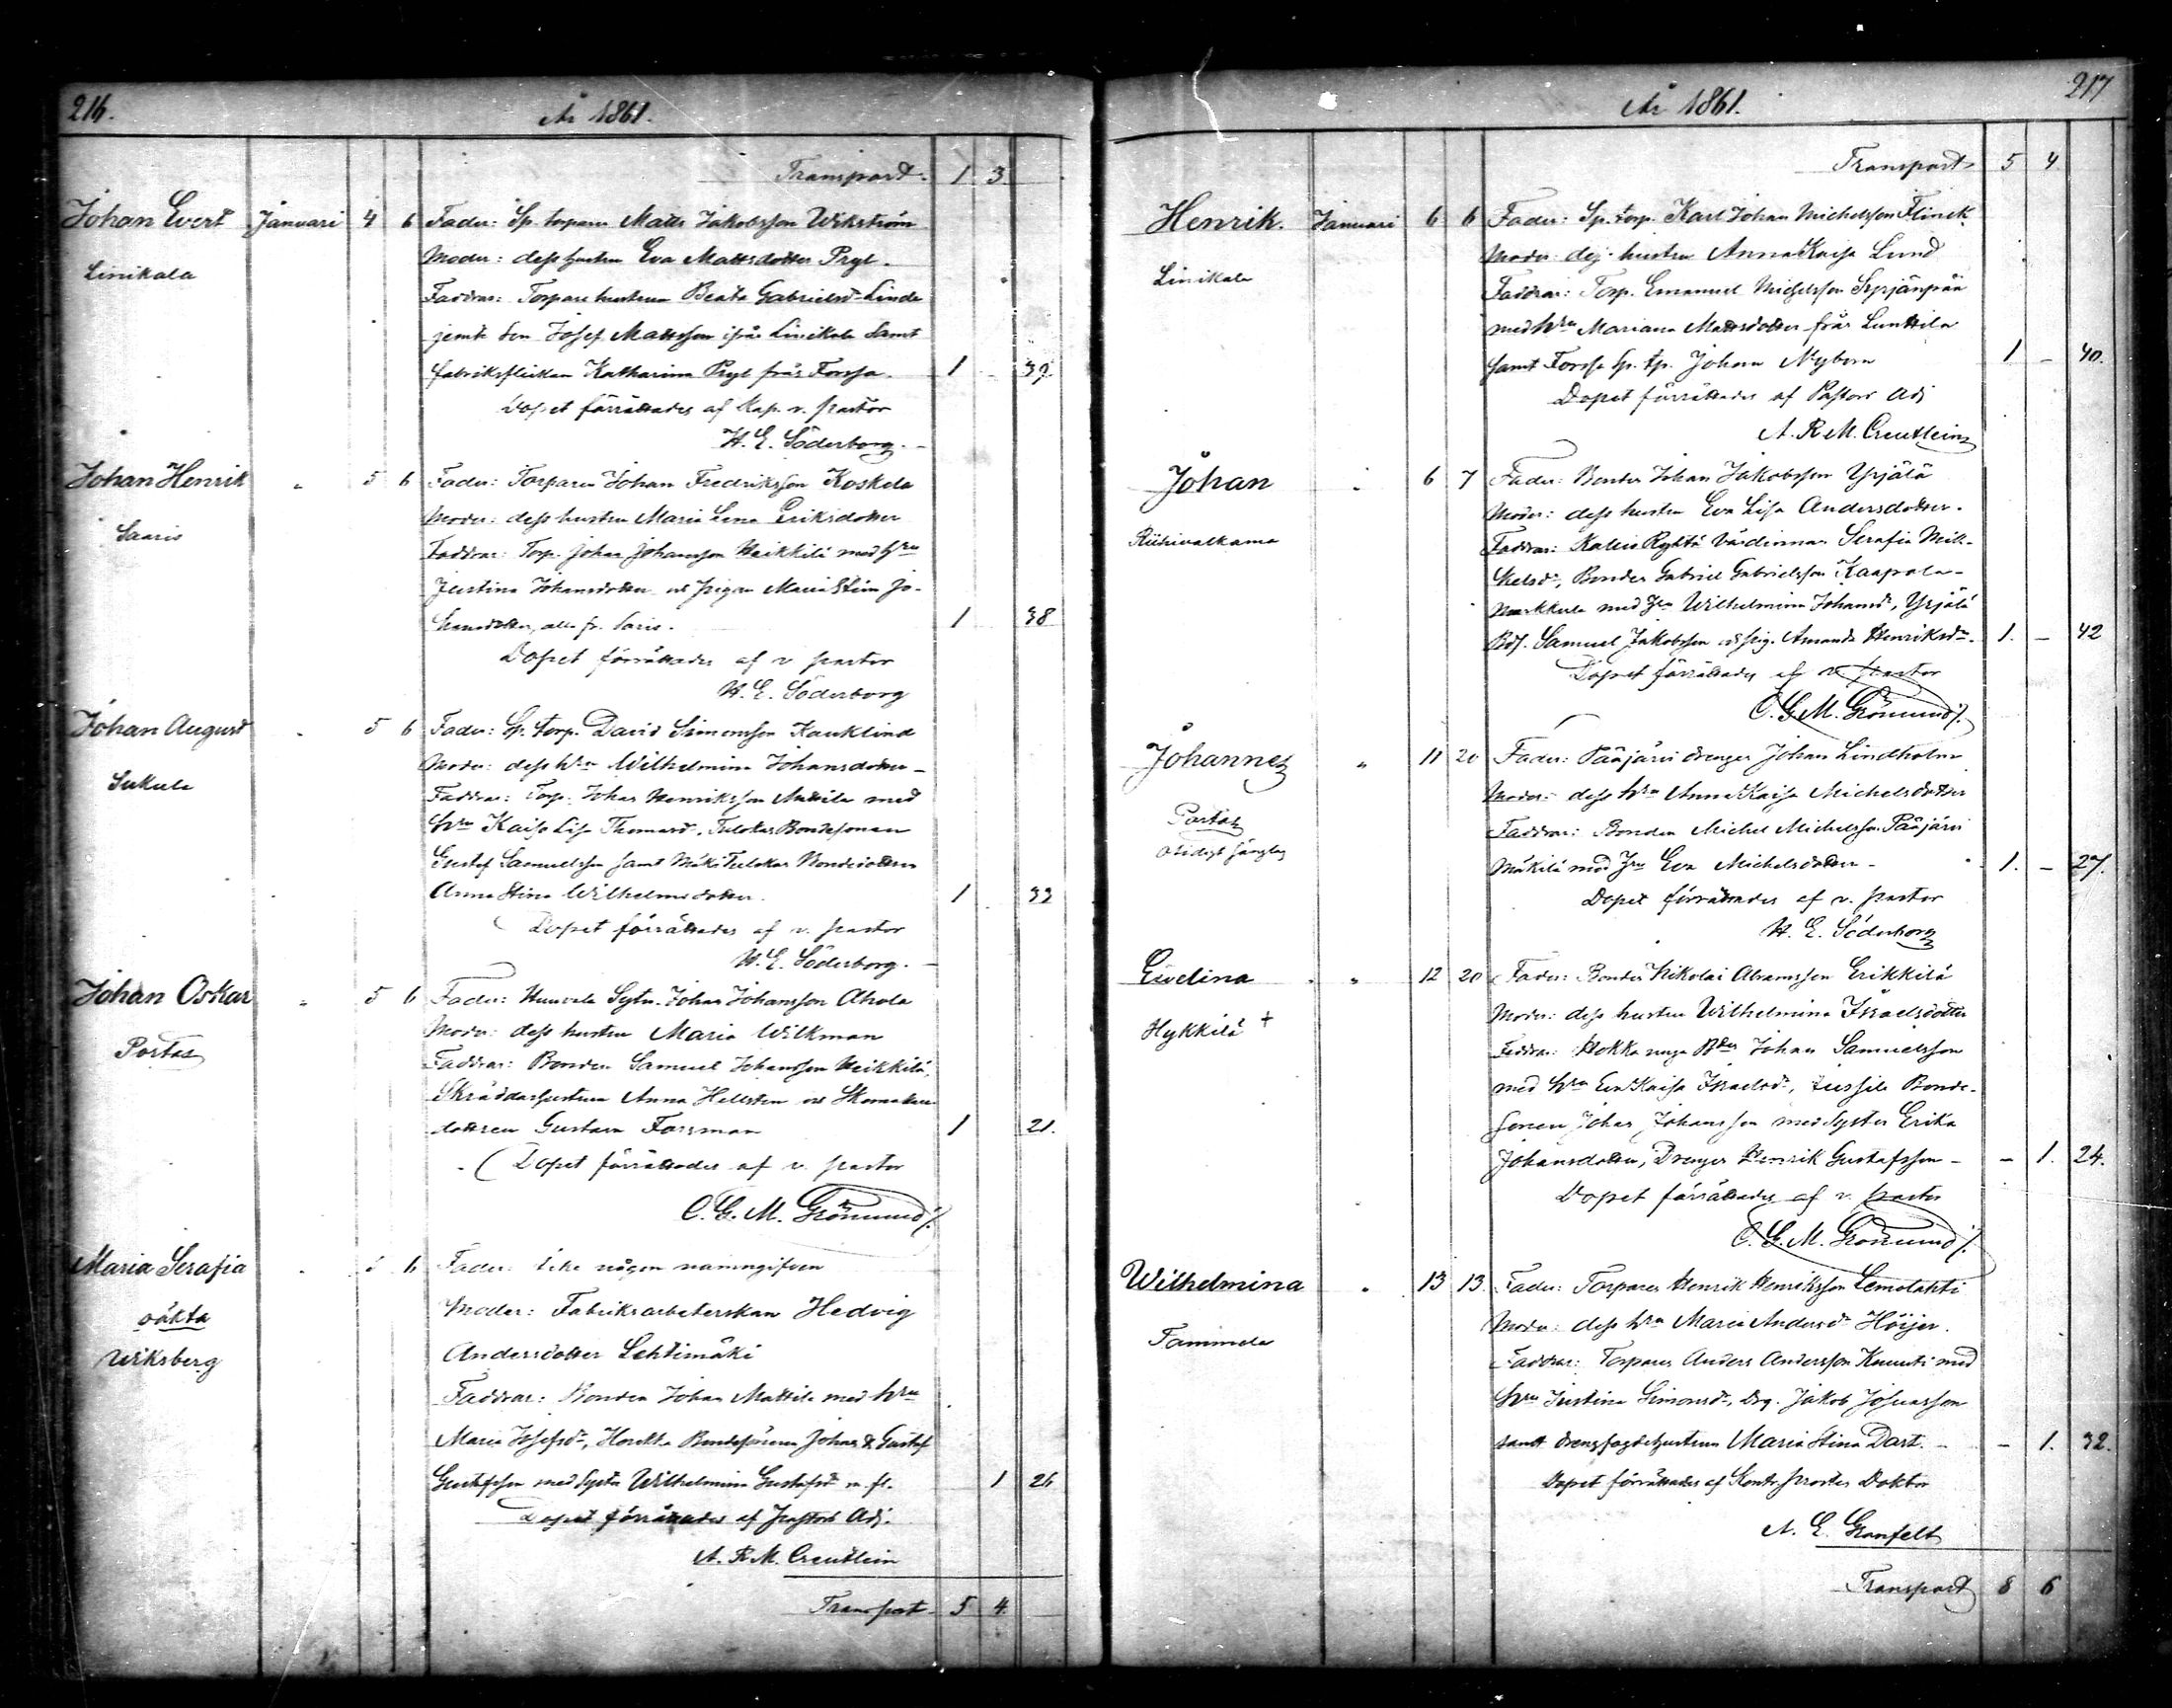 216.
År 1861.
Transport. 1 3
Johan Evert Januari 4 6 Fader: Sp. torparen Matts Jakobsson Wikström
Linikala
Moder: dess hustru Eva Mattsdotter Pryl.
Faddrar: Torpare hustrun Beata Gabrielsd. Linde
jemte son Josef Mattsson ifrån Linikala samt
fabriksflickan Katharina Pryl från Forssa. 1 - 39.
Dopet förrättades af Kap. v. pastor
H. E. Söderborg.
Johan Henrik " 5 6 Fader: Torparen Johan Fredriksson Koskela
Saaris
Moder: dess hustru Maria Lena Eriksdotter
Faddrar: Torp. Johan Johansson Heikkilä med hru
Justina Johansdotter o pigan Maria Stina Jo-
hansdotter, alla fr. Saris. 1 38
Dopet förrättades af v. pastor
H. E. Söderborg
Johan August " 5 6 Fader: Sp. torp. David Simonsson Kauklind
Sukula
Moder: dess hru Wilhelmina Johansdotter
Faddrar: Torp. Johan Henriksson Anttila med
hru Kaisa Lisa Thomasd., Talokas Bondesonen
Gustaf Samuelsson samt Mäki Talokas Bondedottern
Anna Stina Wilhelmsdotter. 1 33
Dopet förrättades af v. pastor
H. E. Söderborg.
Johan Oskar " 5 6 Fader: Sytn. Johan Johansson Ahola
Portas
Moder: dess hustru Maria Wilkman
Faddrar: Bonden Samuel Johansson Heikkilä,
Skräddarhustrun Anna Hellsten och Skomakare
dottren Gustava Forsman 1 21.
Dopet förrättades af v. pastor
C. G. M. Grönmund /.
Maria Serafia " 6 Fader: Icke någon namngifven
oäkta
Wiksberg
Moder: Fabriksarbeterskan Hedvig
Andersdotter Lehtimäki
Faddrar: Bonden Johan Mattila med hru
Maria Josefsd., Bondesönerna Johan & Gustaf
Gustafsson med Syster Wilhelmina Gustafsd. m. fl. 1 26
Dopet förrättades af Pastors Adj.
A. R. M. Creutlein
Transport 5 4.
217
År 1861.
Transport 5 4.
Henrik. Januari 6 6 Fader: Sp. torp. Karl Johan Michelsson Flinck.
Linikala
Moder: dess hustru Anna Kaisa Lund
Faddrar: Torp. Emanuel Michelsson Syrjänpää
med hru Mariana Mattsdotter från Lunttila
samt Forssa Sp. tp. Johan Nybom 1 - 40.
Dopet förrättades af Pastors Adj
A. R. M. Creutlein
Johan " 6 7 Fader: Bonden Johan Jakobsson Yrjälä
Riihivalkama
Moder: dess hustru Eva Lisa Andersdotter.
Faddrar: Kalius Rykkä Värdinnan Serafia Mik-
kelsd., Bonden Gabriel Gabrielsson Kaapola-
Markkula med hru Wilhelmina Johansd., Yrjälä
Bds. Samuel Jakobsson o pig. Amanda Henriksdr. 1. - 42
Dopet förrättades af v. pastor
C. G. M. Grönmund /.
Johannes " 11 20 Fader: Pääjärvi drengen Johan Lindholm
Portas
Moder: dess hru Anna Kaisa Michelsdotter
Faddrar: Bonden Michel Michelsson Pääjärvi
Mäkilä med hru Eva Michelsdotter - 1. - 27.
Dopet förrättades af v. pastor
H. E. Söderborg
Evelina " 12 20 Fader: Bonden Nikolai Abramsson Erikkilä
Hykkilä +
Moder: dess hustru Wilhelmina Israelsdotter
Faddrar: Hokka unga Bden Johan Samuelsson
med hru Eva Kaisa Israelsd., Jussila Bonde-
sonen Johan Johansson med Syster Erika
Johansdotter, Drengen Henrik Gustafsson - - 1. 24.
Dopet förrättades af v. pastor
C. G. M. Grönmund /.
Wilhelmina " 13 13. Fader: Torparen Henrik Henriksson Lemolahti
Tammela
Moder: dess hru Maria Andersdr Höijer.
Faddrar: Torparen Anders Andersson Knuuti med
hru Justina Simonsdr, drg. Jakob Josuasson
samt drengfogdehustrun Maria Stina Dart. - - 1. 32.
Dopet förrättades af Kontr. prosten Doktor
A. E. Granfelt
Transport 8 6